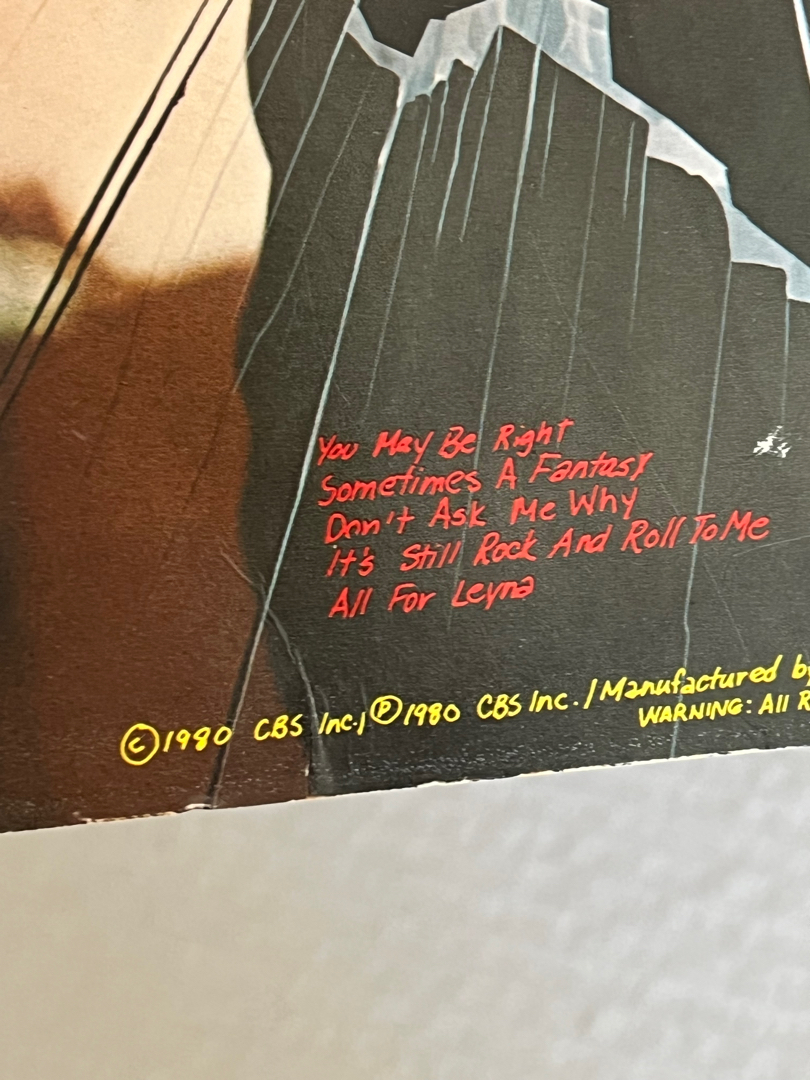 You May Be Right
Sometimes A Fantasy
Don't Ask Me Why
It's Still Rock And Roll To Me
All For Leyna
©1980 CBS Inc./℗1980 CBS Inc./Manufactured by
WARNING: All R